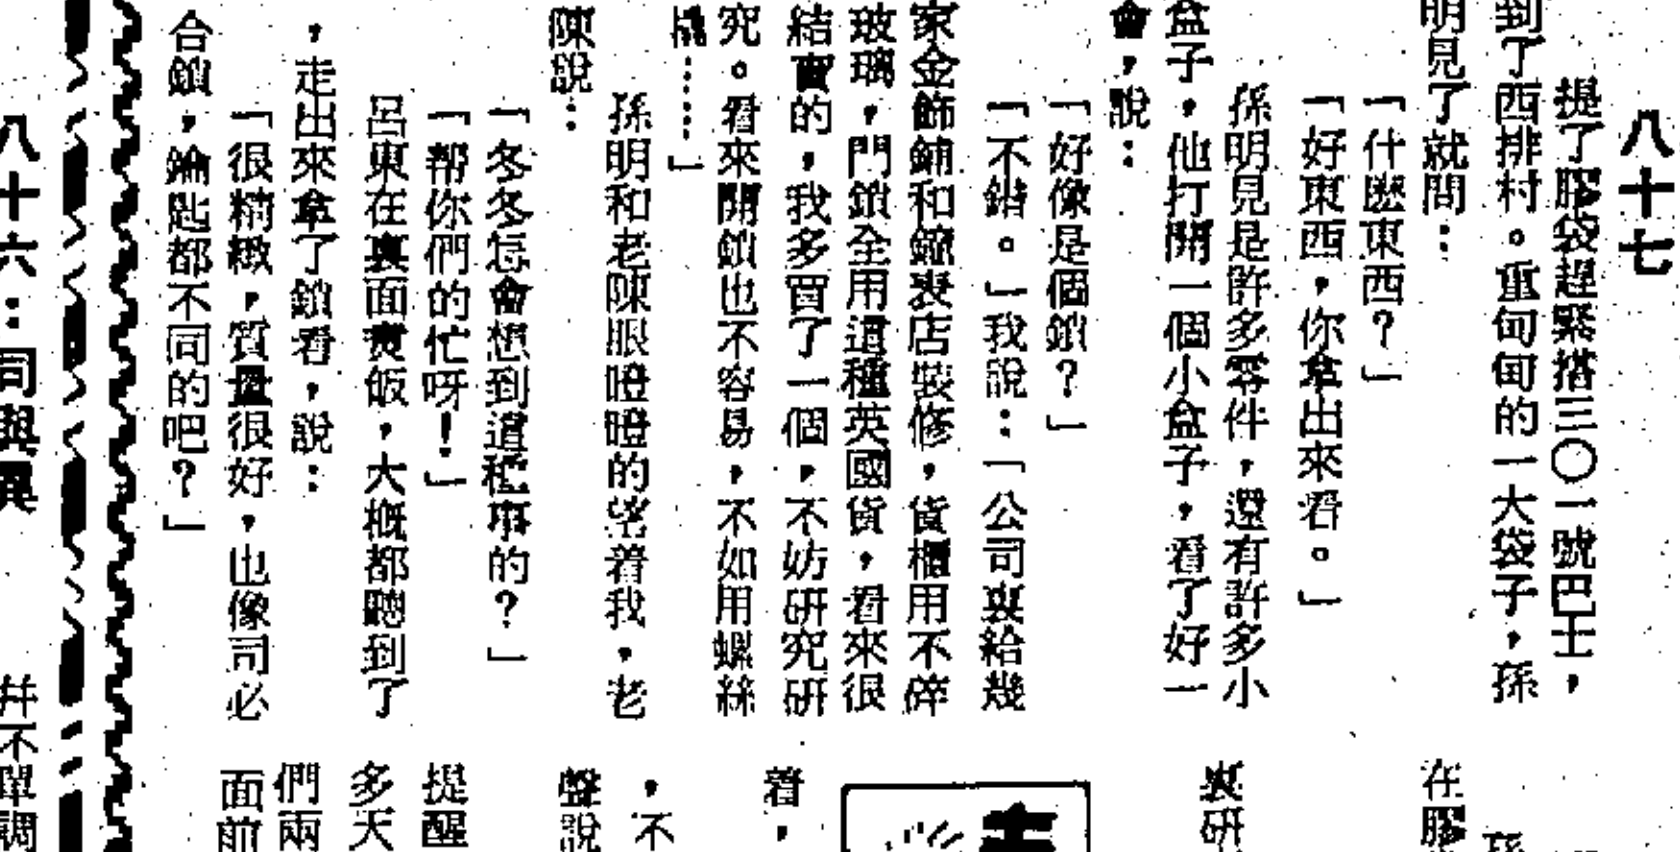 八十七
提了膠袋趕緊搭三〇一號巴士，
到了西排村。重甸甸的一大袋子，孫
明見了就問：
「什麽東西？」
「好東西，你拿出來看。」
孫明見是許多零件，還有許多小
盒子，他打開一個小盒子，看了好一
會，說：
「好像是個鎖？」
「不錯。」我說：「公司裏給幾
家金飾鋪和鐘表店裝修，貨櫃用不碎
玻璃，門鎖全用這種英國貨，看來很
結實的，我多買了一個，不妨研究研
究。看來開鎖也不容易，不如用螺絲
……」
孫明和老陳眼噔噔的望着我，老
陳說：
「冬冬怎會想到這種事的？」
「帮你們的忙呀！」
呂東在裏面煑飯，大槪都聽到了
，走出來拿了鎖看，說：
「很精緻，質量很好，也像司必
合鎖，鑰匙都不同的吧？」
八十六：同與異
在膠
孫
裏研
着，
，不
聲說
提醒
多天
們兩
面前
幷不單調